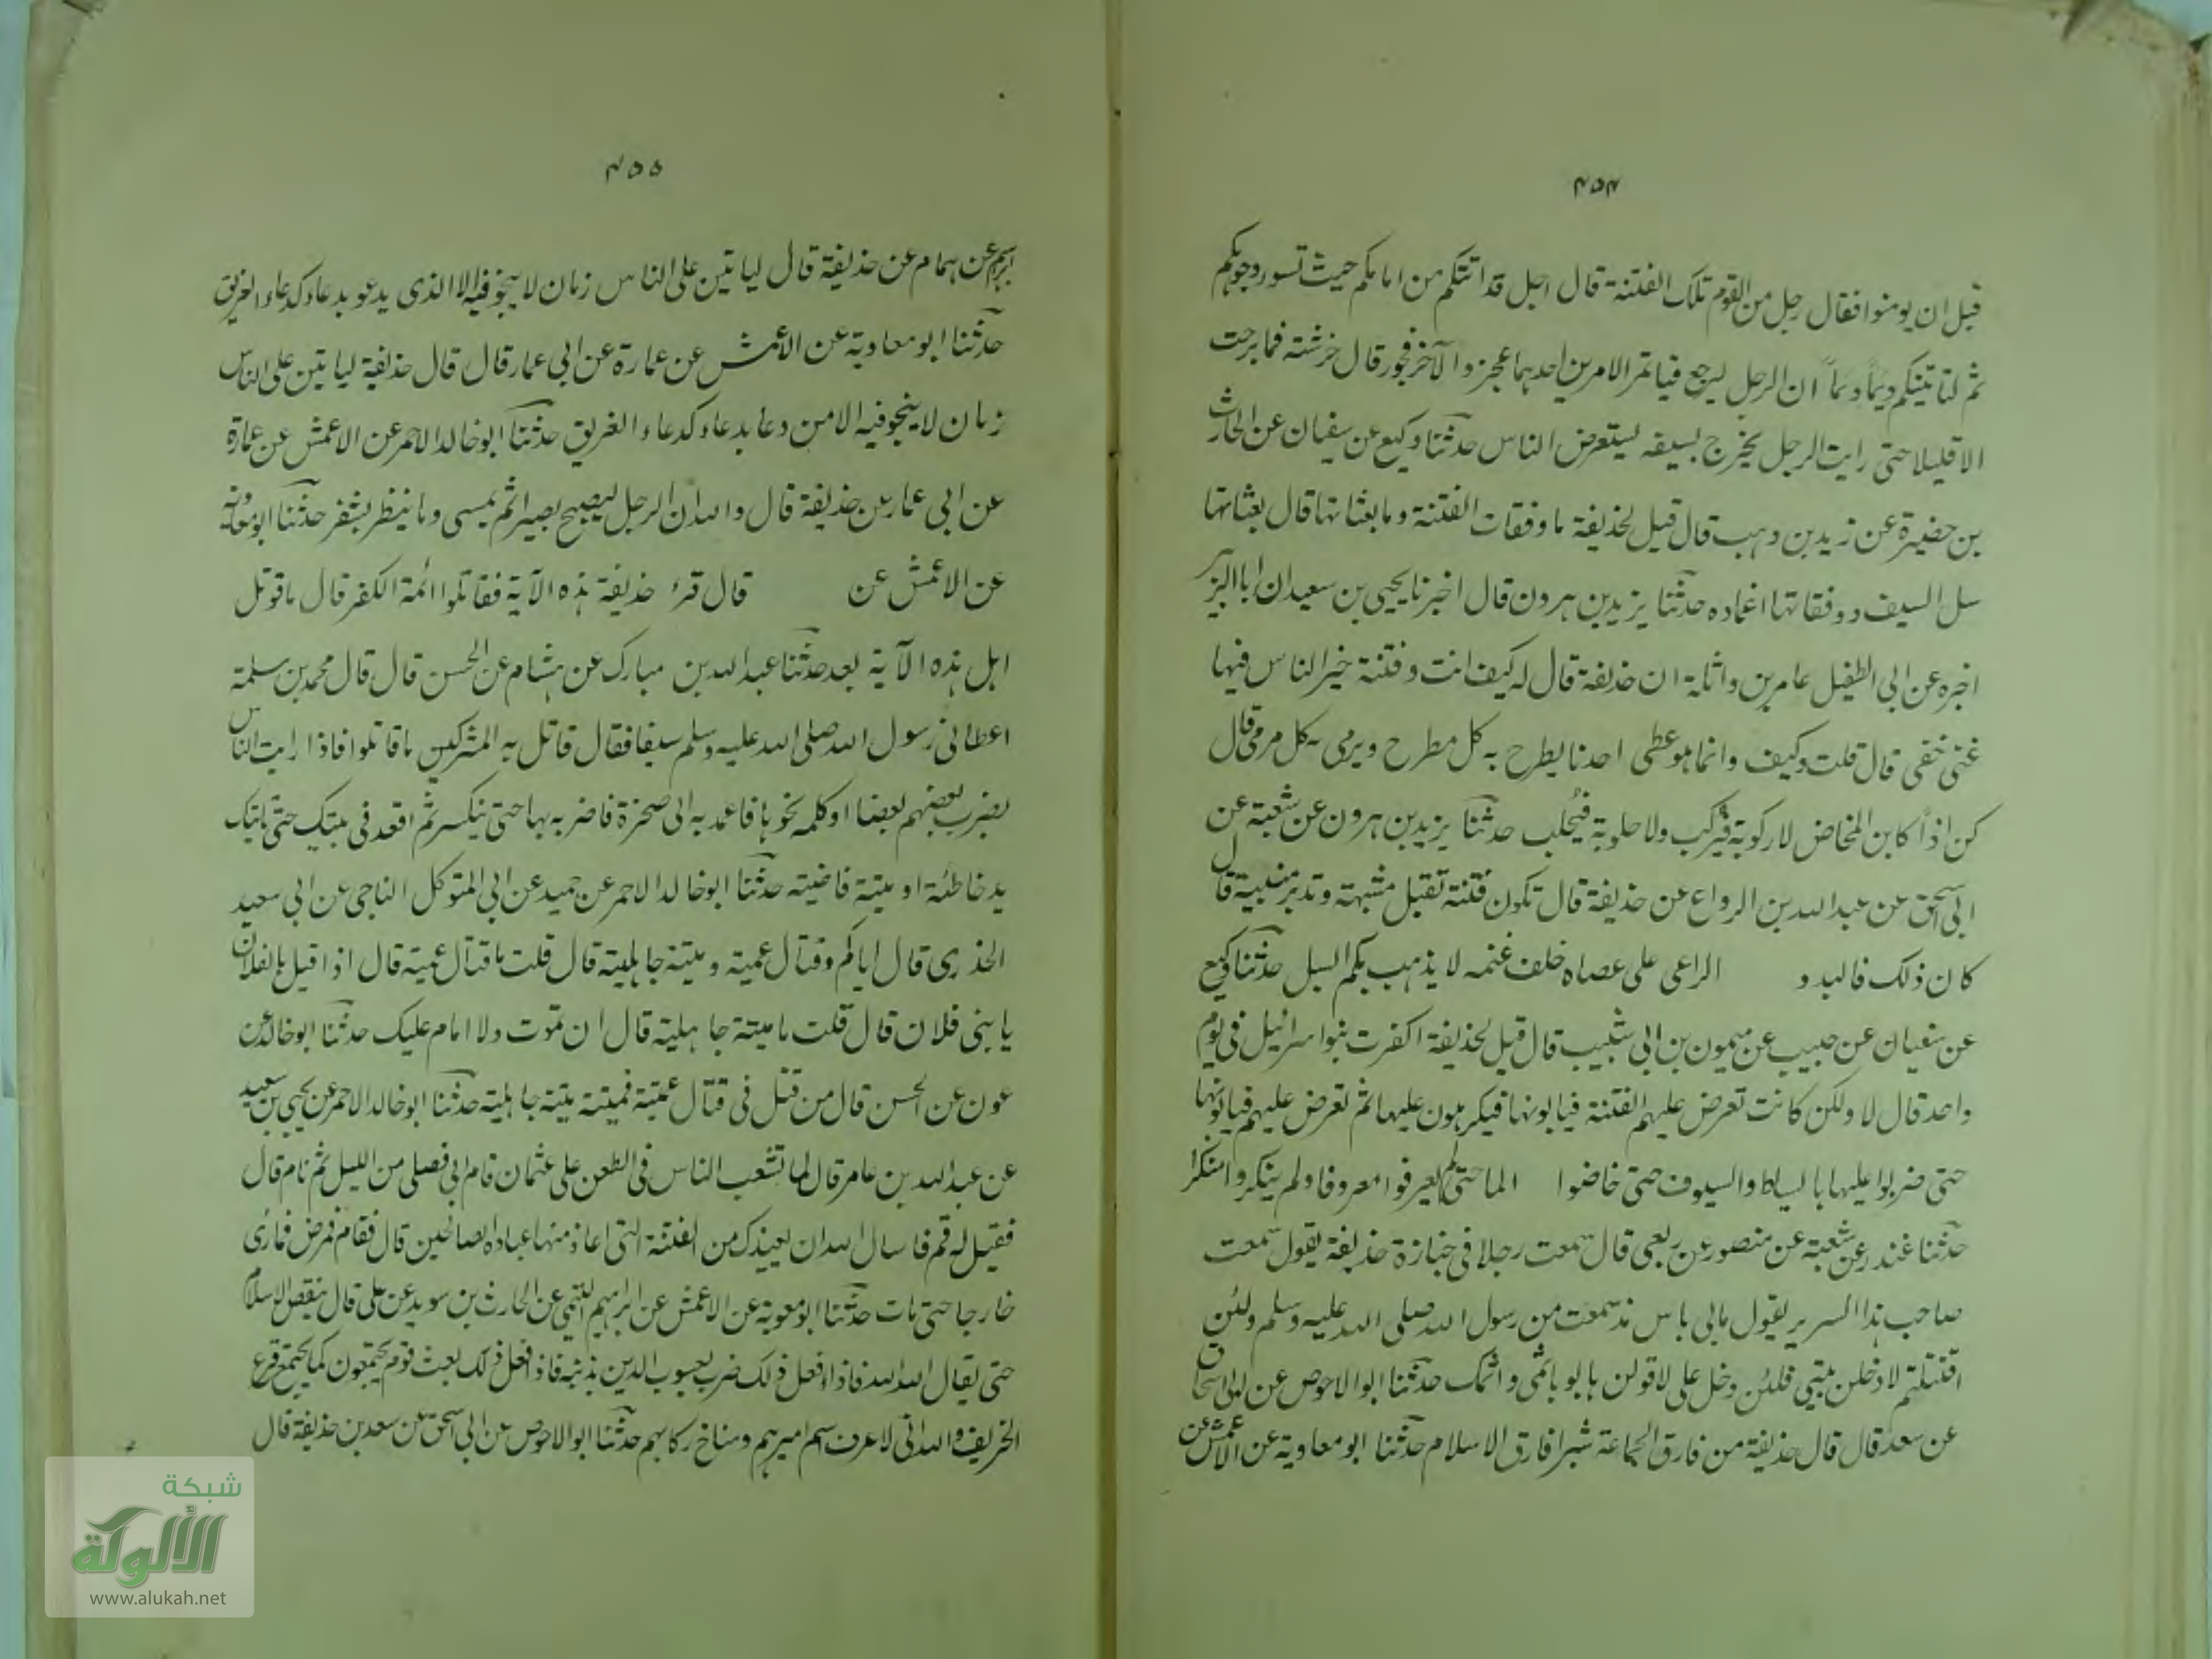 ۴۵۴
قبل ان يومنوا فقال رجل من القوم تلك الفتنة قال اجل قد اتتكم من امامكم حيث تسور وجوهكم
ثم لتاتينكم ديماً ديماً ان الرجل ليرجع فياتمر الامرين احدهما عجز والآخر فجور قال خرشته فما برحت
الا قليلا حتى رايت الرجل يخرج بسيفه ليستعرض الناس حدثنا وكيع عن سفيان عن الحارث
بن حضيرة عن زيد بن وهب قال قيل لحذيفة ما وفقات الفتنة وما بعثاتها قال بعثاتها
سل السيف ووفقاتها اغماده حدثنا يزيد بن هرون قال اخبرنا يحيى بن سعيد ان ابا الزبير
اخبره عن ابى الطفيل عامر بن واثلة ان حذيفة قال له كيف انت وفتنة خير الناس فيها
غنى خفى قال قلت وكيف وانما هو عطى احدنا يطرح به كل مطرح ويرمى به كل مرمى قال
كن اذاً كابن المخاض لا ركوبة فتركب ولا حلوبة فتحلب حدثنا يزيد بن هرون عن شعبة عن
ابى اسحق عن عبد الله بن الرواع عن حذيفة قال تكون فتنة تقبل مشبهة وتدبر منبية قال
كان ذلك فالبدو الراعى على عصاه خلف غنمه لا يذهب بكم السيل حدثنا وكيع
عن سفيان عن حبيب عن ميمون بن ابى شبيب قال قيل لحذيفة اكفرت بنو اسرائيل فى يوم
واحد قال لا ولكن كانت تعرض عليهم الفتنة فيابونها فيكرهون عليها ثم تعرض عليهم فيابونها
حتى ضربوا عليها بالسياط والسيوف حتى خاضوا الما حتى لم يعرفوا معروفا ولم ينكروا منكرا
حدثنا غندر عن شعبة عن منصور عن ربعى قال سمعت رجلا فى جنازة حذيفة يقول سمعت
صاحب هذا السرير يقول مابى باس مذ سمعت من رسول الله صلى الله عليه وسلم ولئن
اقتتلتم لادخلن بيتى فلئن دخل على لاقولن ها بو باثمى واثمك حدثنا ابو الاحوص عن ابى اسحاق
عن سعد قال قال حذيفة من فارق الجماعة شبرا فارق الاسلام حدثنا ابو معاوية عن الاعمش عن
۴۵۵
ابرهيم عن همام عن حذيفة قال لياتين على الناس زمان لا ينجو فيه الا الذى يدعو بدعاء كدعاء الغريق
حدثنا ابو معاوية عن الاعمش عن عمارة عن ابى عمار قال قال حذيفة لياتين على الناس
زمان لا ينجو فيه الا من دعا بدعاء كدعاء الغريق حدثنا ابو خالد الاحمر عن الاعمش عن عمارة
عن ابى عمار عن حذيفة قال والله ان الرجل ليصبح بصيرا ثم يمسى وما ينظر بشفر حدثنا ابو معاوية
عن الاعمش عن قال قرء حذيفة هذه الآية فقاتلوا ائمة الكفر قال ما قوتل
اهل هذه الآية بعد حدثنا عبد الله بن مبارك عن هشام عن الحسن قال قال محمد بن سلمة
اعطانى رسول الله صلى الله عليه وسلم سيفا فقال قاتل به المشركين ما قاتلوا فاذا رايت الناس
يضرب بعضهم بعضا او كلمه نحوها فاعمد به الى صخرة فاضربه بها حتى ينكسر ثم اقعد فى بيتك حتى تاتيك
يد خاطئة او ميتة قاضيته حدثنا ابو خالد الاحمر عن حميد عن ابى المتوكل الناجى عن ابى سعيد
الخدرى قال اياكم وقتال عمية وميتة جاهلية قال قلت ما قتال عمية قال اذا قيل يا لفلان
يا بنى فلان قال قلت ما ميتة جاهلية قال ان تموت ولا امام عليك حدثنا ابو خالد عن
عون عن الحسن قال من قتل فى قتال عمية فميتته ميتة جاهلية حدثنا ابو خالد الاحمر عن يحيى بن سعيد
عن عبد الله بن عامر قال لما تشعب الناس فى الطعن على عثمان قام ابى فصلى من الليل ثم نام قال
فقيل له قم فاسال الله ان يعيذك من الفتنة التى اعاذ منها عباده الصالحين قال فقام فمرض فما رئى
خارجا حتى مات حدثنا ابو معوية عن الاعمش عن ابرهيم التيمى عن الحارث بن سويد عن على قال ينقص الاسلام
حتى لا يقال الله الله فاذا فعل ذلك ضرب يعسوب الدين بذنبه فاذا فعل ذلك بعث قوم يجتمعون كما يجتمع قزع
الخريف والله انى لاعرف اسم اميرهم ومناخ ركابهم حدثنا ابو الاحوص عن ابى اسحق عن سعد بن حذيفة قال
شبكة
الألوكة
www.alukah.net